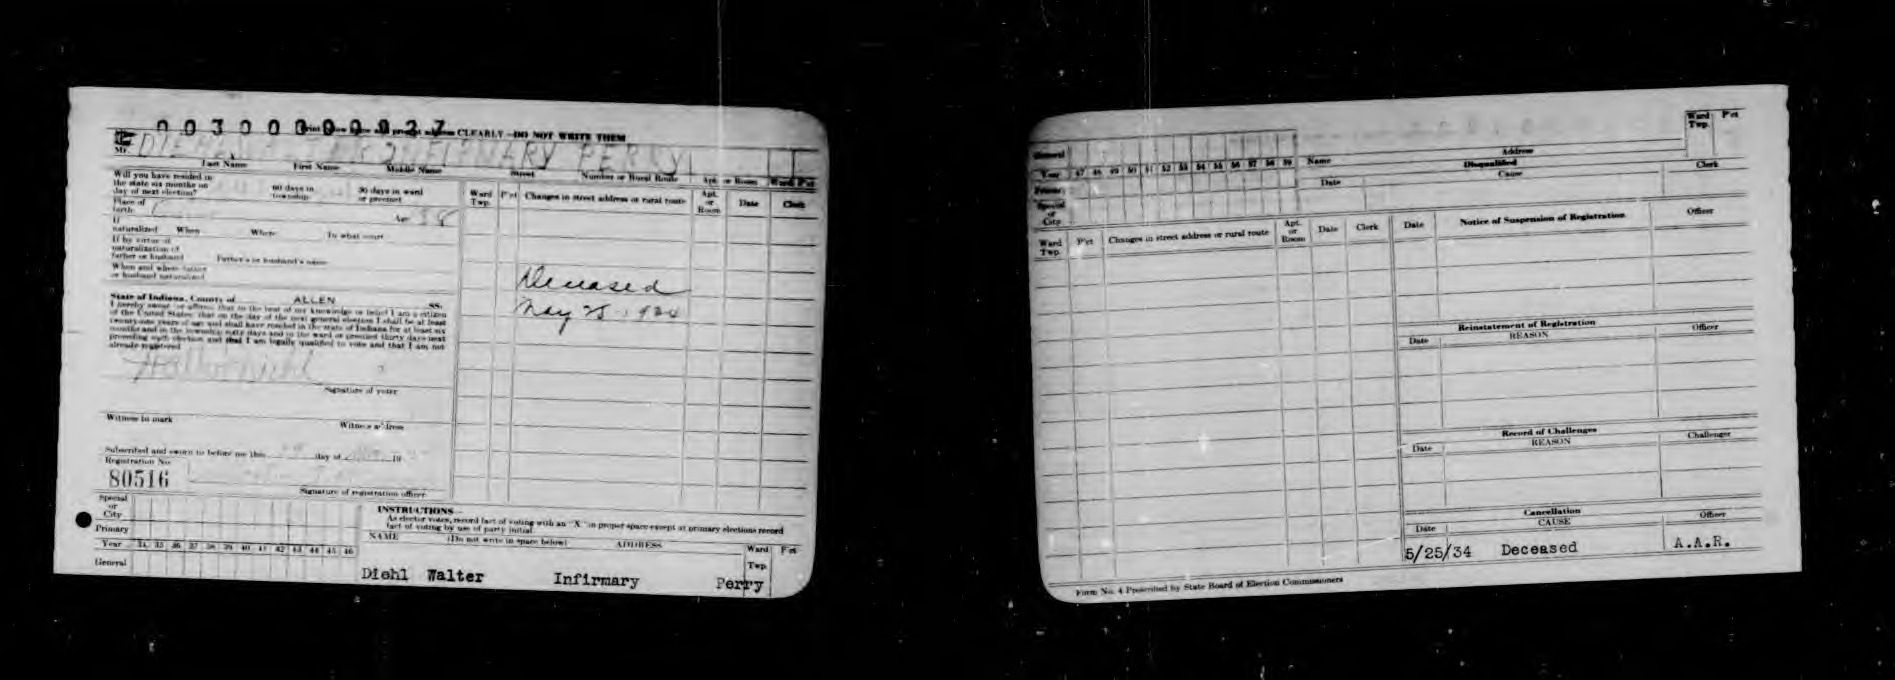 0030000027
Print your name and present address CLEARLY—DO NOT WRITE THEM
Mr. DIEHL PERRY
Last Name First Name Middle Name Street Number or Rural Route Apt. or Room Ward P'ct
Will you have resided in
the state six months on
day of next election?
60 days in
township
30 days in ward
or precinct
Place of
birth
Age 58
If
naturalized When Where In what court
If by virtue of
naturalization of
father or husband
Father's or husband's name
When and where father
or husband naturalized
State of Indiana, County of ALLEN SS.
I hereby swear or affirm that to the best of my knowledge or belief I am a citizen
of the United States; that on the day of the next general election I shall be at least
twenty-one years of age and shall have resided in the state of Indiana for at least six
months and in the township sixty days and in the ward or precinct thirty days next
preceding such election and that I am legally qualified to vote and that I am not
already registered
Signature of voter
Witness to mark Witness address
Subscribed and sworn to before me this day of 19
Registration No.
80516
Signature of registration officer
Ward
Twp.
P'ct
Changes in street address or rural route
Apt.
or
Room
Date
Clerk
Deceased
May 25, 1934
Special
or
City
Primary
Year 34 35 36 37 38 39 40 41 42 43 44 45 46
General
INSTRUCTIONS
As elector votes, record fact of voting with an "X" in proper space except at primary elections record
fact of voting by use of party initial
NAME (Do not write in space below) ADDRESS Ward P'ct
Twp.
Diehl Walter Infirmary Perry
General
Year 47 48 49 50 51 52 53 54 55 56 57 58 59
Primary
Special
or
City
Name Address
Ward
Twp.
P'ct
Disqualified
Date Cause Clerk
Ward
Twp.
P'ct
Changes in street address or rural route
Apt.
or
Room
Date
Clerk
Date Notice of Suspension of Registration Officer
Reinstatement of Registration
Date REASON Officer
Record of Challenges
Date REASON Challenger
Cancellation
Date CAUSE Officer
5/25/34 Deceased A.A.R.
Form No. 4 Prescribed by State Board of Election Commissioners